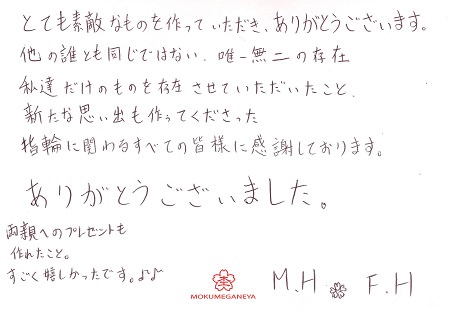 とても素敵なものを作っていただき、ありがとうございます。
他の誰とも同じではない、唯一無二の存在
私達だけのものを存在させていただいたこと、
新たな思い出も作ってくださった
指輪に関わるすべての皆様に感謝しております。
ありがとうございました。
両親へのプレゼントも
作れたこと。
すごく嬉しかったです。♪♪
MOKUMEGANEYA
M.H F.H